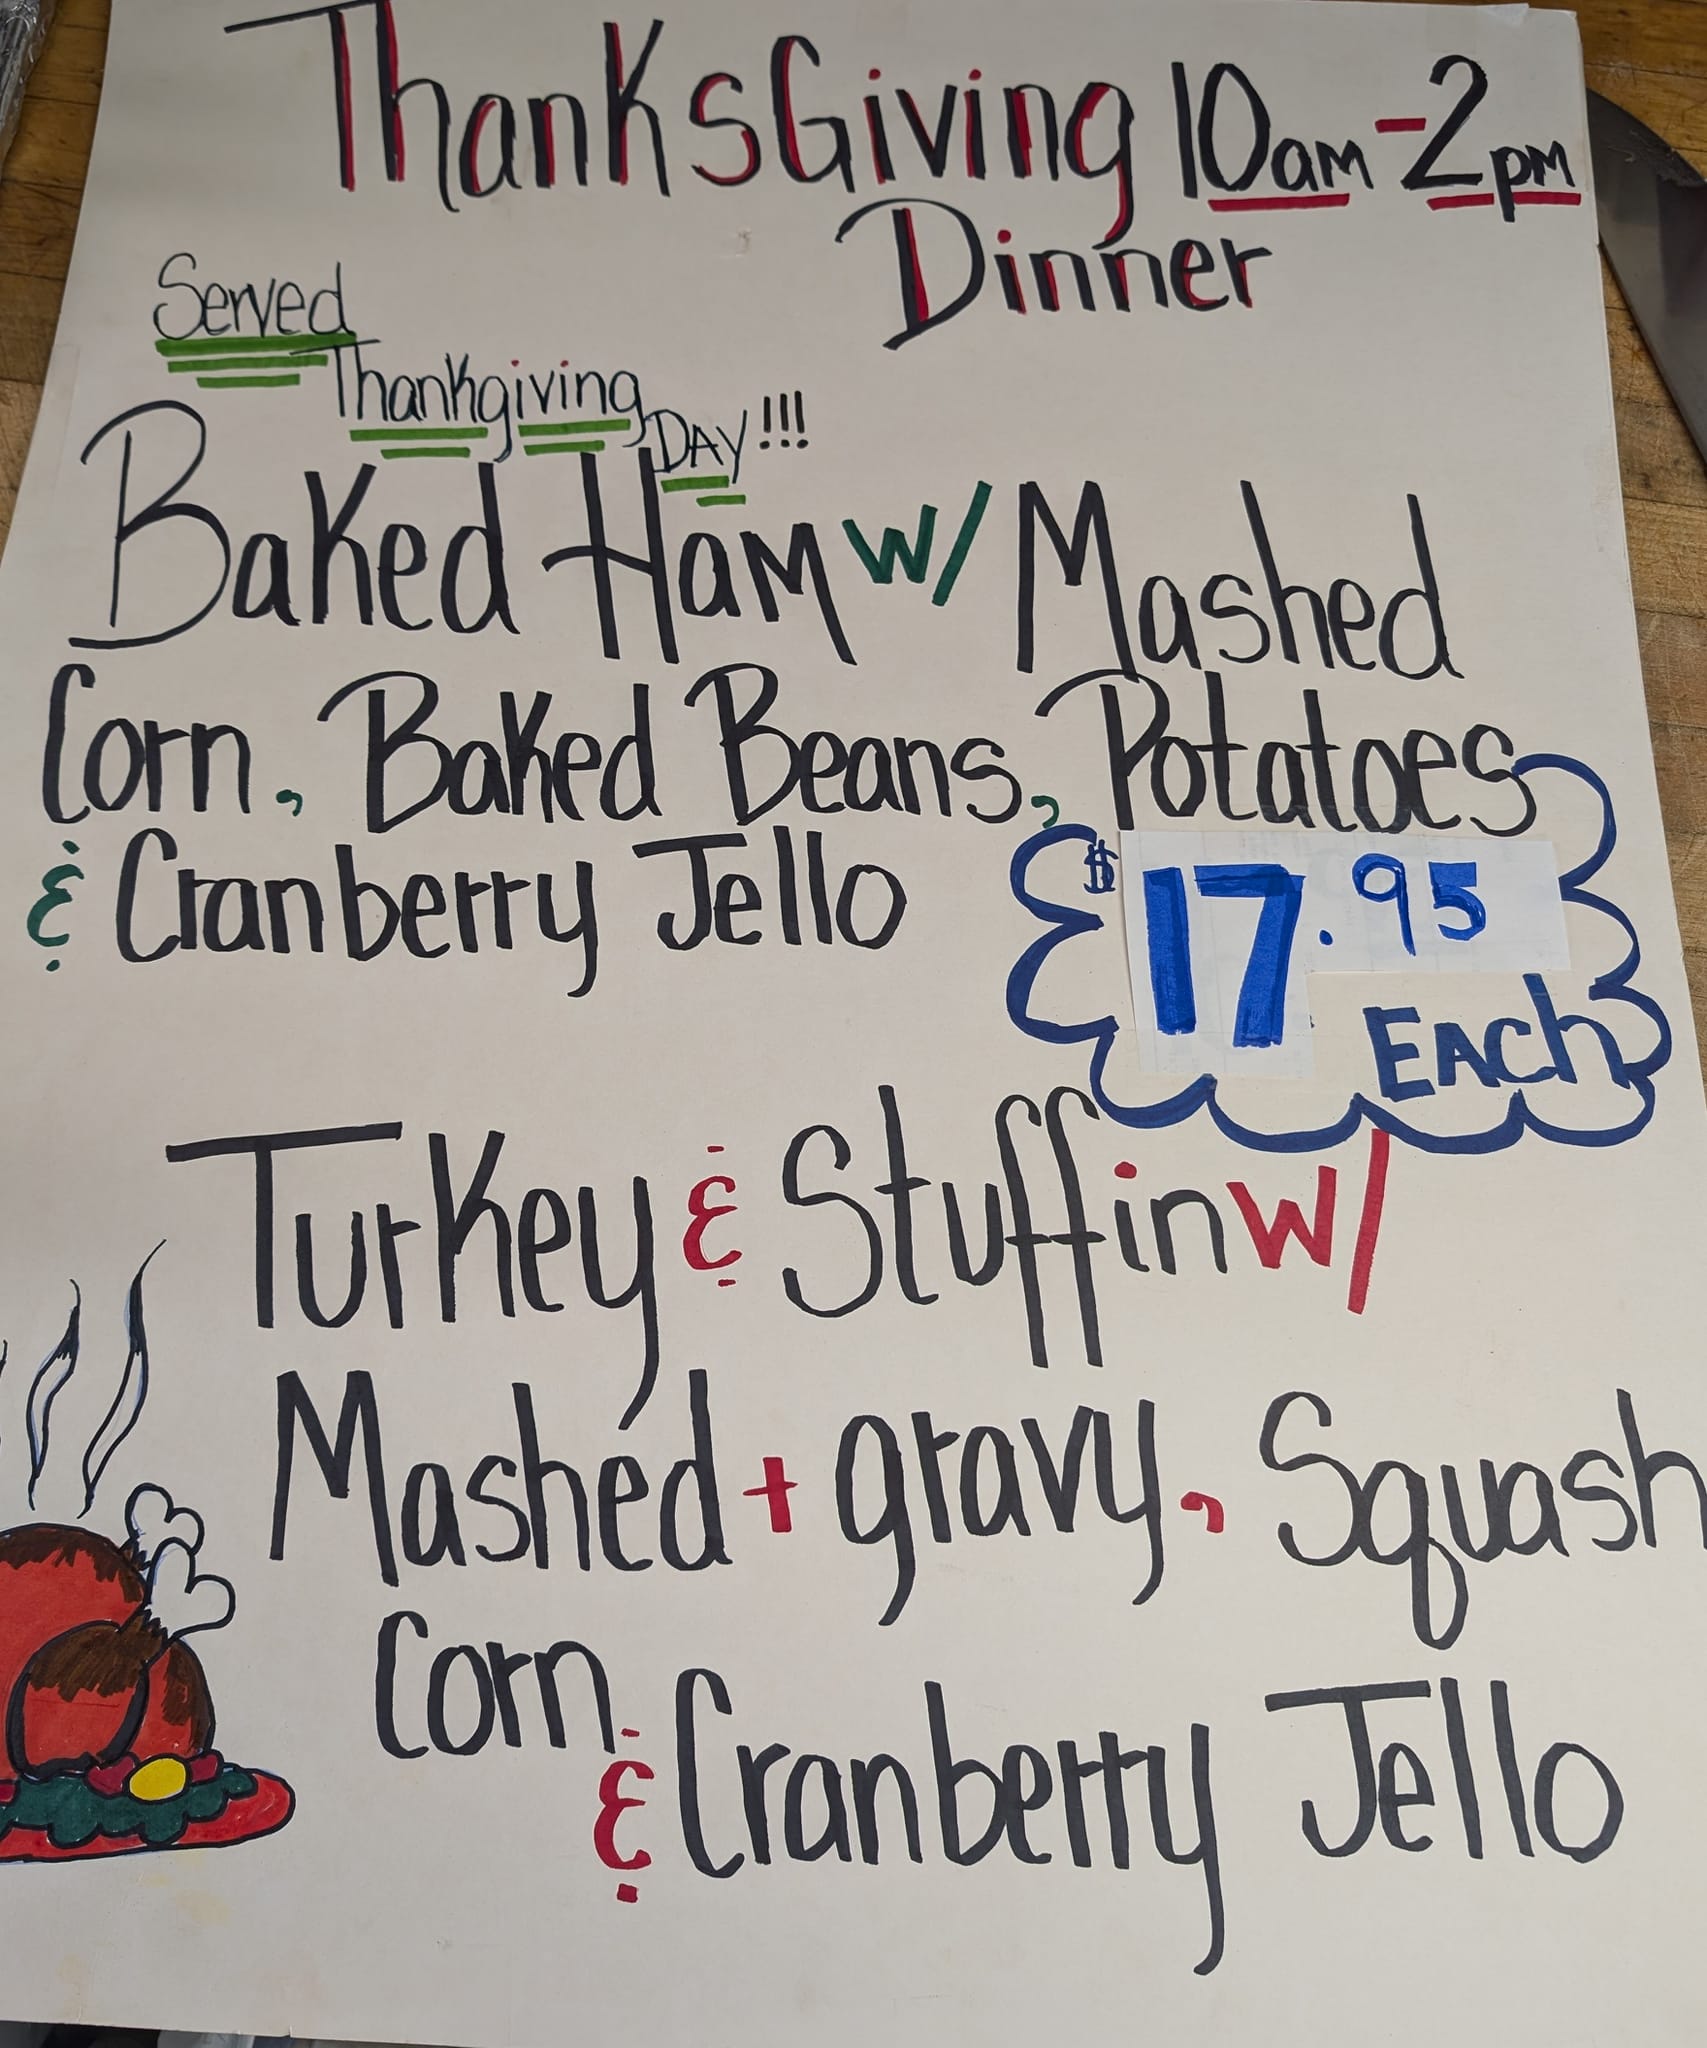 ThanksGiving 10am-2pm
Dinner
Served
Thankgiving
DAY!!!
Baked Ham w/ Mashed
Corn, Baked Beans, Potatoes
& Cranberry Jello
$17.95
EACh
Turkey & Stuffin w/
Mashed + gravy, Squash
Corn
& Cranberry Jello